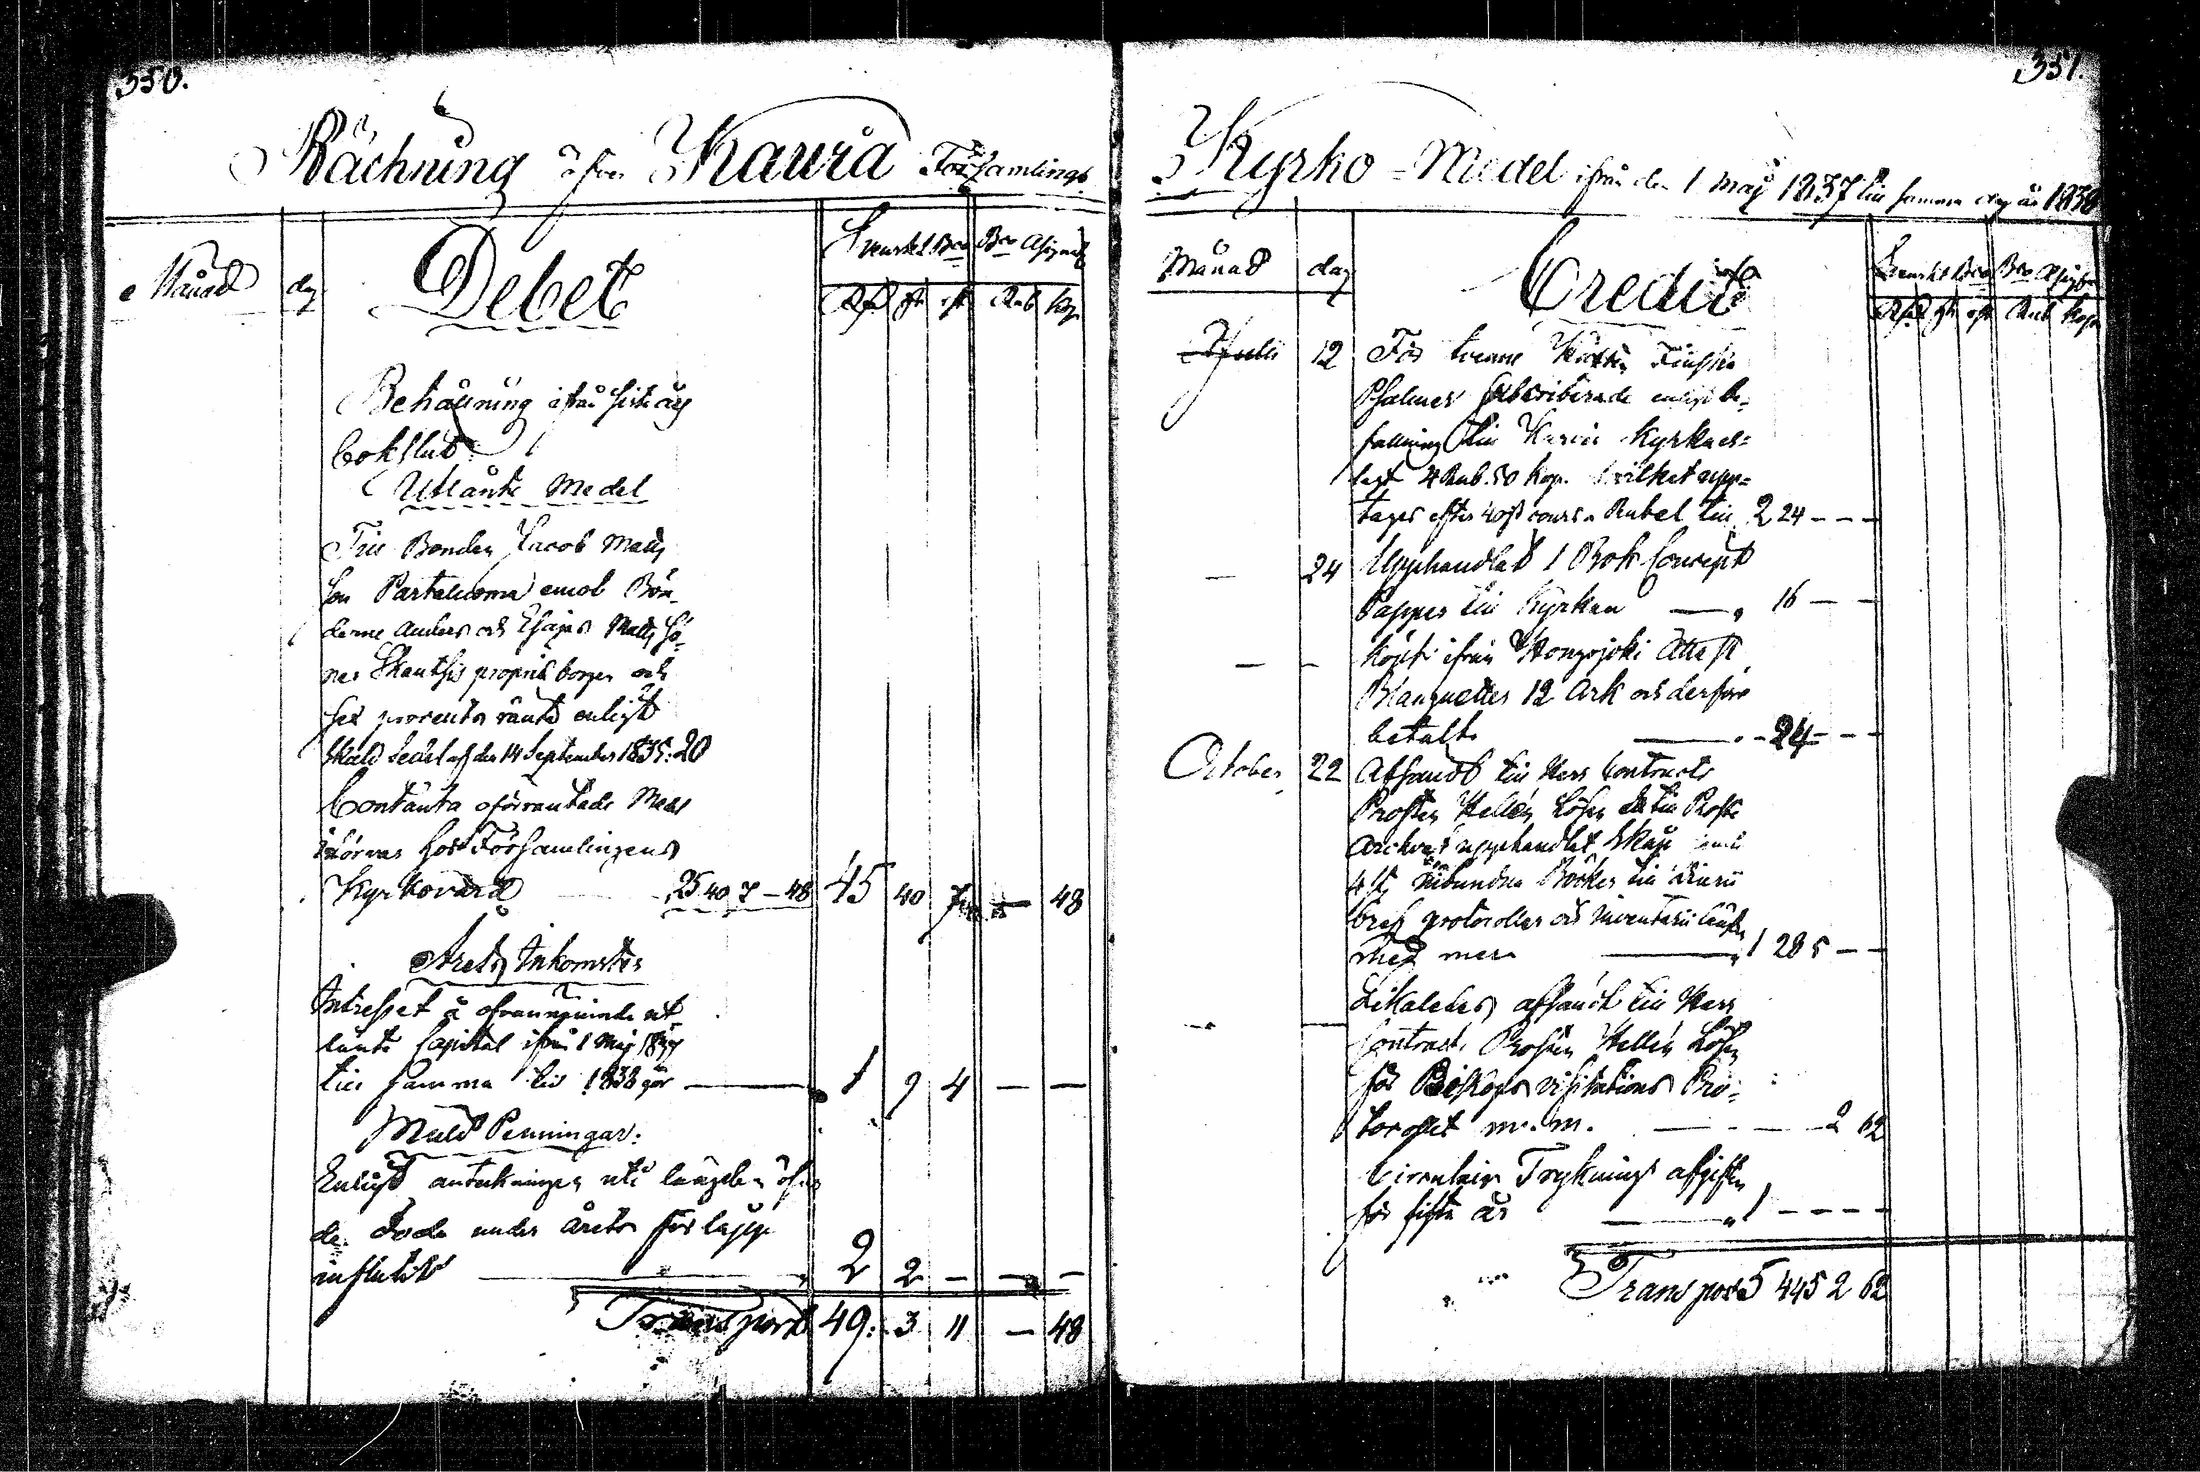 350.
Räckning öfver Kauvia Församlings
Månad dag Debet Svenskt Bco Bco Assignat
Rd sk rst Rub kop
Behållning ifrån sista års
bokslut
Utlånte Medel
Till Bonden Jacob Matts
son Partaluoma emot Bön-
derne Anders och Esajas Matts Sö-
ner Skantsis proprie borgen och
sex procents ränta enligt
skuld Sedel af den 14 September 1835: 20
Contanta oförräntade Medel
förvaras hos Församlingens
Kyrkovärd 25 40 7 – 48 45 40 7 — 48
Årets Inkomster
Intresset å ofvannämnde ut-
lånte Capital ifrån 1 Maj 1837
till samma tid 1838 gör 1 9 4 — —
Mull Penningar:
Enligt anteckningen uti längden öfver
de Döda under årets förlopp
influtit 2 2 — — —
Transport 49: 3 11 — 48
351.
Kyrko-Medel ifrån den 1 Maj 1837 till samma dag år 1838
Månad dag Credit Svenskt Bco Bco Assign
Rd sk rst Rub Kop
Julii 12 För tvenne Finska
Psalmer subscriberade enligt be-
fallning till Kyrkaes-
4 Rub. 50 Kop. hvilket upp-
tages efter cours. Rubel till 2 24 – – –
— 24 Upphandlat 1 Bok Concept
Papper till Kyrkan — 16 — —
— – Köpt ifrån Hongojoki Attest
Blanquetter 12 Ark och derföre
betalt — 24 – –
October 22 Afsändt till Herr Contracts
Prosten Hellén Lösen till Prosti
Archivet upphandlat Skåp
4 st. inbundna Böcker till Diarii
bref protocoller och Inventarii
med mera — 1 28 5 – –
Likaledes afsändt till Herr
Contract. Prosten Hellén Lösen
för Biskops visitations Pro-
tocollet m. m. — 2 62
Circulair Tryknings afgiften
för sista år — 1 – – – –
Transport 5 44 5 2 62